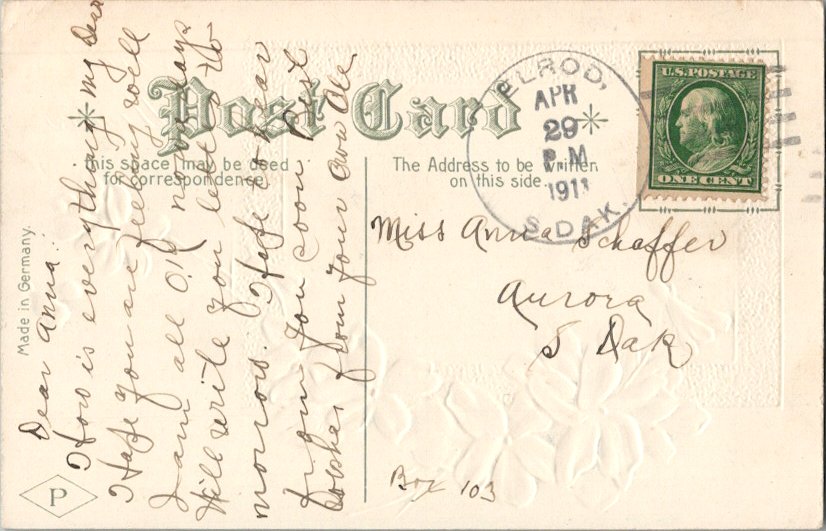 Post Card
This space may be used
for correspondence.
The Address to be written
on this side.
Made in Germany.
P
ELROD,
APR
29
P.M
1911
S. DAK.
U.S. POSTAGE
ONE CENT
Dear Anna:
How is everything my Dear
Hope you are feeling well
I am all O.K. nowadays
Will write you letter to
morrow. Hope to hear
from you soon Best
Wishes from Your Own
Miss Anna Schaffer
Aurora
S Dak
Box 103